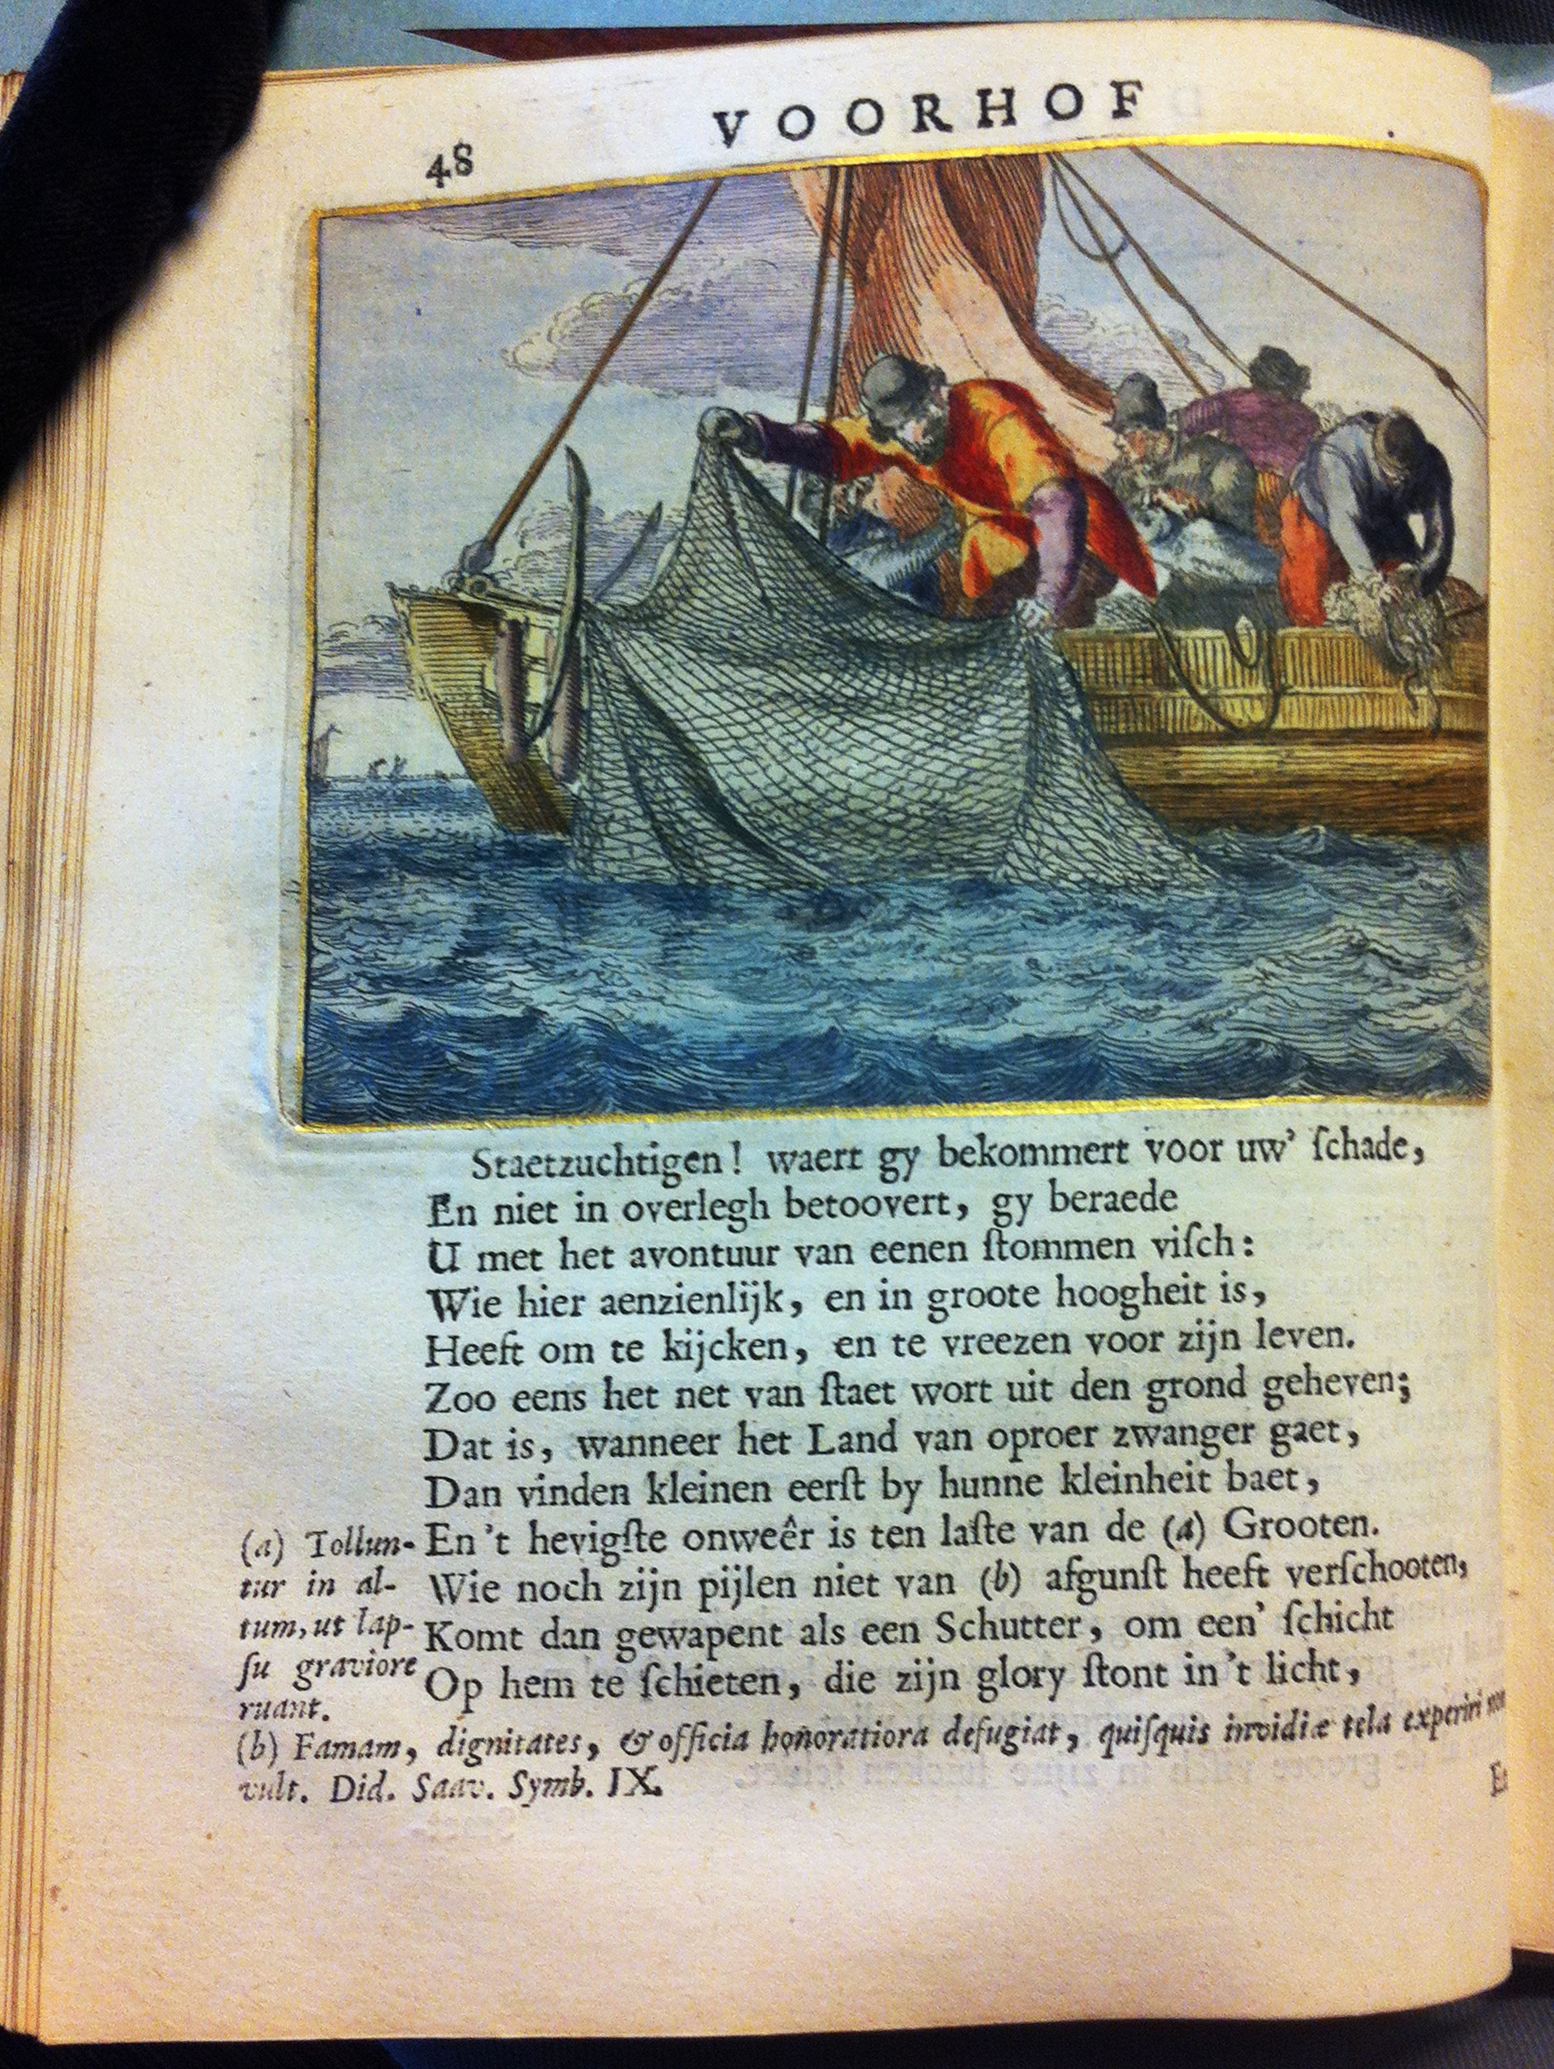 VOORHOF
48
Staetzuchtigen! waert gy bekommert voor uw' ſchade,
En niet in overlegh betoovert, gy beraede
U met het avontuur van eenen ſtommen viſch:
Wie hier aenzienlijk, en in groote hoogheit is,
Heeft om te kijcken, en te vreezen voor zijn leven.
Zoo eens het net van ſtaet wort uit den grond geheven;
Dat is, wanneer het Land van oproer zwanger gaet,
Dan vinden kleinen eerſt by hunne kleinheit baet,
En 't hevigſte onweêr is ten laſte van de (a) Grooten.
Wie noch zijn pijlen niet van (b) afgunſt heeft verſchooten,
Komt dan gewapent als een Schutter, om een' ſchicht
Op hem te ſchieten, die zijn glory ſtont in 't licht,
(a) Tollun-
tur in al-
tum, ut lap-
ſu graviore
ruant.
(b) Famam, dignitates, & officia honoratiora defugiat, quiſquis invidiæ tela experiri non
vult. Did. Saav. Symb. IX.